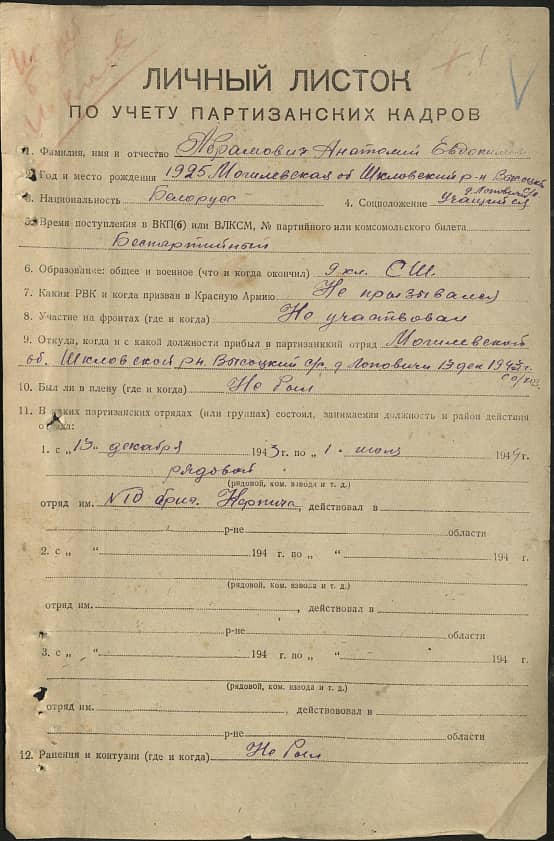 ЛИЧНЫЙ ЛИСТОК
ПО УЧЕТУ ПАРТИЗАНСКИХ КАДРОВ
1. Фамилия, имя и отчество Абрамович Анатолий
2. Год и место рождения 1925 Могилевская об Шкловский р-н Высоцкий
д. Лопович с/с
3. Национальность Белорус 4. Соцположение Учащийся
5. Время поступления в ВКП(б) или ВЛКСМ, № партийного или комсомольского билета
Беспартийный
6. Образование: общее и военное (что и когда окончил) 9 кл. СШ.
7. Каким РВК и когда призван в Красную Армию Не призывался
8. Участие на фронтах (где и когда) Не участвовал
9. Откуда, когда и с какой должности прибыл в партизанкий отряд Могилевской
об. Шкловской р-н. Высоцкий с/с д. Лоповичи 13 дек 1943 г.
10. Был ли в плену (где и когда) Не был
11. В каких партизанских отрядах (или группах) состоял, занимаемая должность и район действия
отряда:
1. с „13„ декабря 1943 г. по „1„ июля 1944 г.
рядовой
(рядовой, ком. взвода и т. д.)
отряд им. №10 бриг. , действовал в
р-не области
2. с „ “ 194 г. по „ “ 194 г.
(рядовой, ком. взвода и т. д.)
отряд им. , действовал в
р-не области
3. с „ “ 194 г. по „ “ 194 г.
(рядовой, ком. взвода и т. д.)
отряд им. , действовал в
р-не области
12. Ранения и контузии (где и когда) Не был